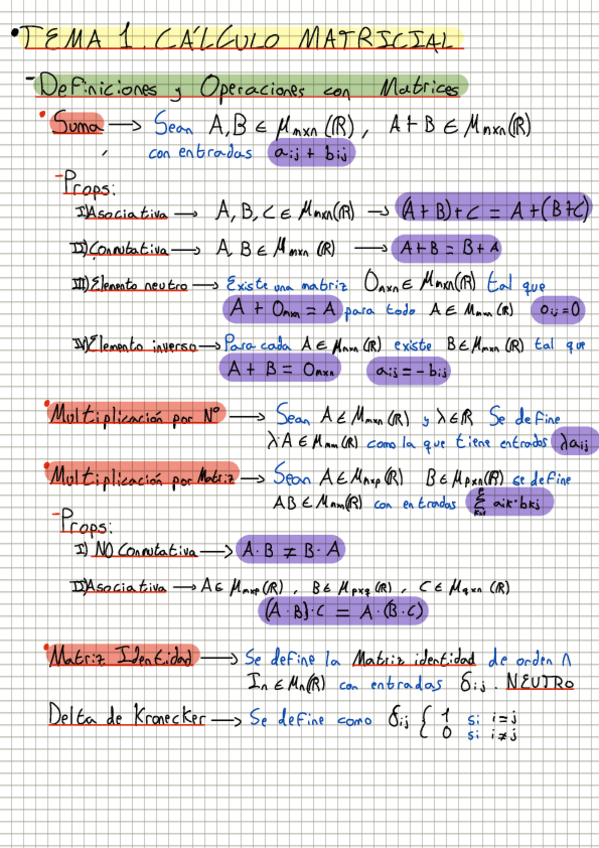 • TEMA 1. CÁLCULO MATRICIAL
- Definiciones y Operaciones con Matrices
• Suma → Sean A, B ∈ M_mxn (ℝ), A+B ∈ M_mxn (ℝ)
con entradas a_ij + b_ij
- Props:
I) Asociativa → A, B, C ∈ M_mxn (ℝ) → (A+B)+C = A+(B+C)
II) Conmutativa → A, B ∈ M_mxn (ℝ) → A+B = B+A
III) Elemento neutro → Existe una matriz 0_mxn ∈ M_mxn (ℝ) tal que
A + 0_mxn = A para todo A ∈ M_mxn (ℝ) 0_ij = 0
IV) Elemento inverso → Para cada A ∈ M_mxn (ℝ) existe B ∈ M_mxn (ℝ) tal que
A + B = 0_mxn a_ij = - b_ij
• Multiplicación por Nº → Sean A ∈ M_mxn (ℝ) y λ ∈ ℝ Se define
λ·A ∈ M_mxn (ℝ) como la que tiene entradas λa_ij
• Multiplicación por Matriz → Sean A ∈ M_mxp (ℝ) B ∈ M_pxn (ℝ) se define
AB ∈ M_mxn (ℝ) con entradas Σ a_ik·b_kj
- Props:
I) NO Conmutativa → A·B ≠ B·A
II) Asociativa → A ∈ M_mxp (ℝ), B ∈ M_pxq (ℝ), C ∈ M_qxn (ℝ)
(A·B)·C = A·(B·C)
• Matriz Identidad → Se define la Matriz identidad de orden n
I_n ∈ M_n (ℝ) con entradas δ_ij. NEUTRO
Delta de Kronecker → Se define como δ_ij { 1 si i=j
0 si i≠j